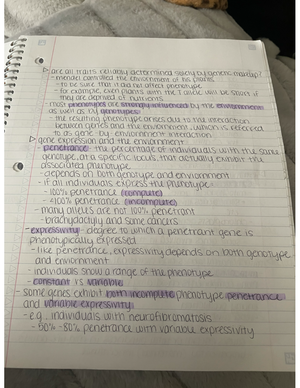 ▷ are all traits reliably determined solely by genetic makeup?
- mendel controlled the environment of his plants
- to be sure it did not affect phenotype
- for example, even plants with the T allele will be short if
they are deprived of nutrients
- most phenotypes are strongly influenced by the environment
as well as by genotypes
- the resulting phenotype arises due to the interaction
between genes and the environment, which is referred
to as gene by environment interaction
▷ gene expression and the environment
- penetrance: the percentage of individuals with the same
genotype at a specific locus that actually exhibit the
associated phenotype
- depends on both genotype and enviornment
- if all individuals express the phenotype
- 100% penetrant (complete)
- <100% penetrant (incomplete)
- many alleles are not 100% penetrant
- brachydactyly and some cancers
- expressivity - degree to which a penetrant gene is
phenotypically expressed
- like penetrance, expressivity depends on both genotype
and enviornment
- individuals show a range of the phenotype
- constant vs variable
- some genes exhibit both incomplete phenotype penetrance
and variable expressivity
- e.g. individuals with neurofibromatosis
- 50% - 80% penetrance with variable expressivity